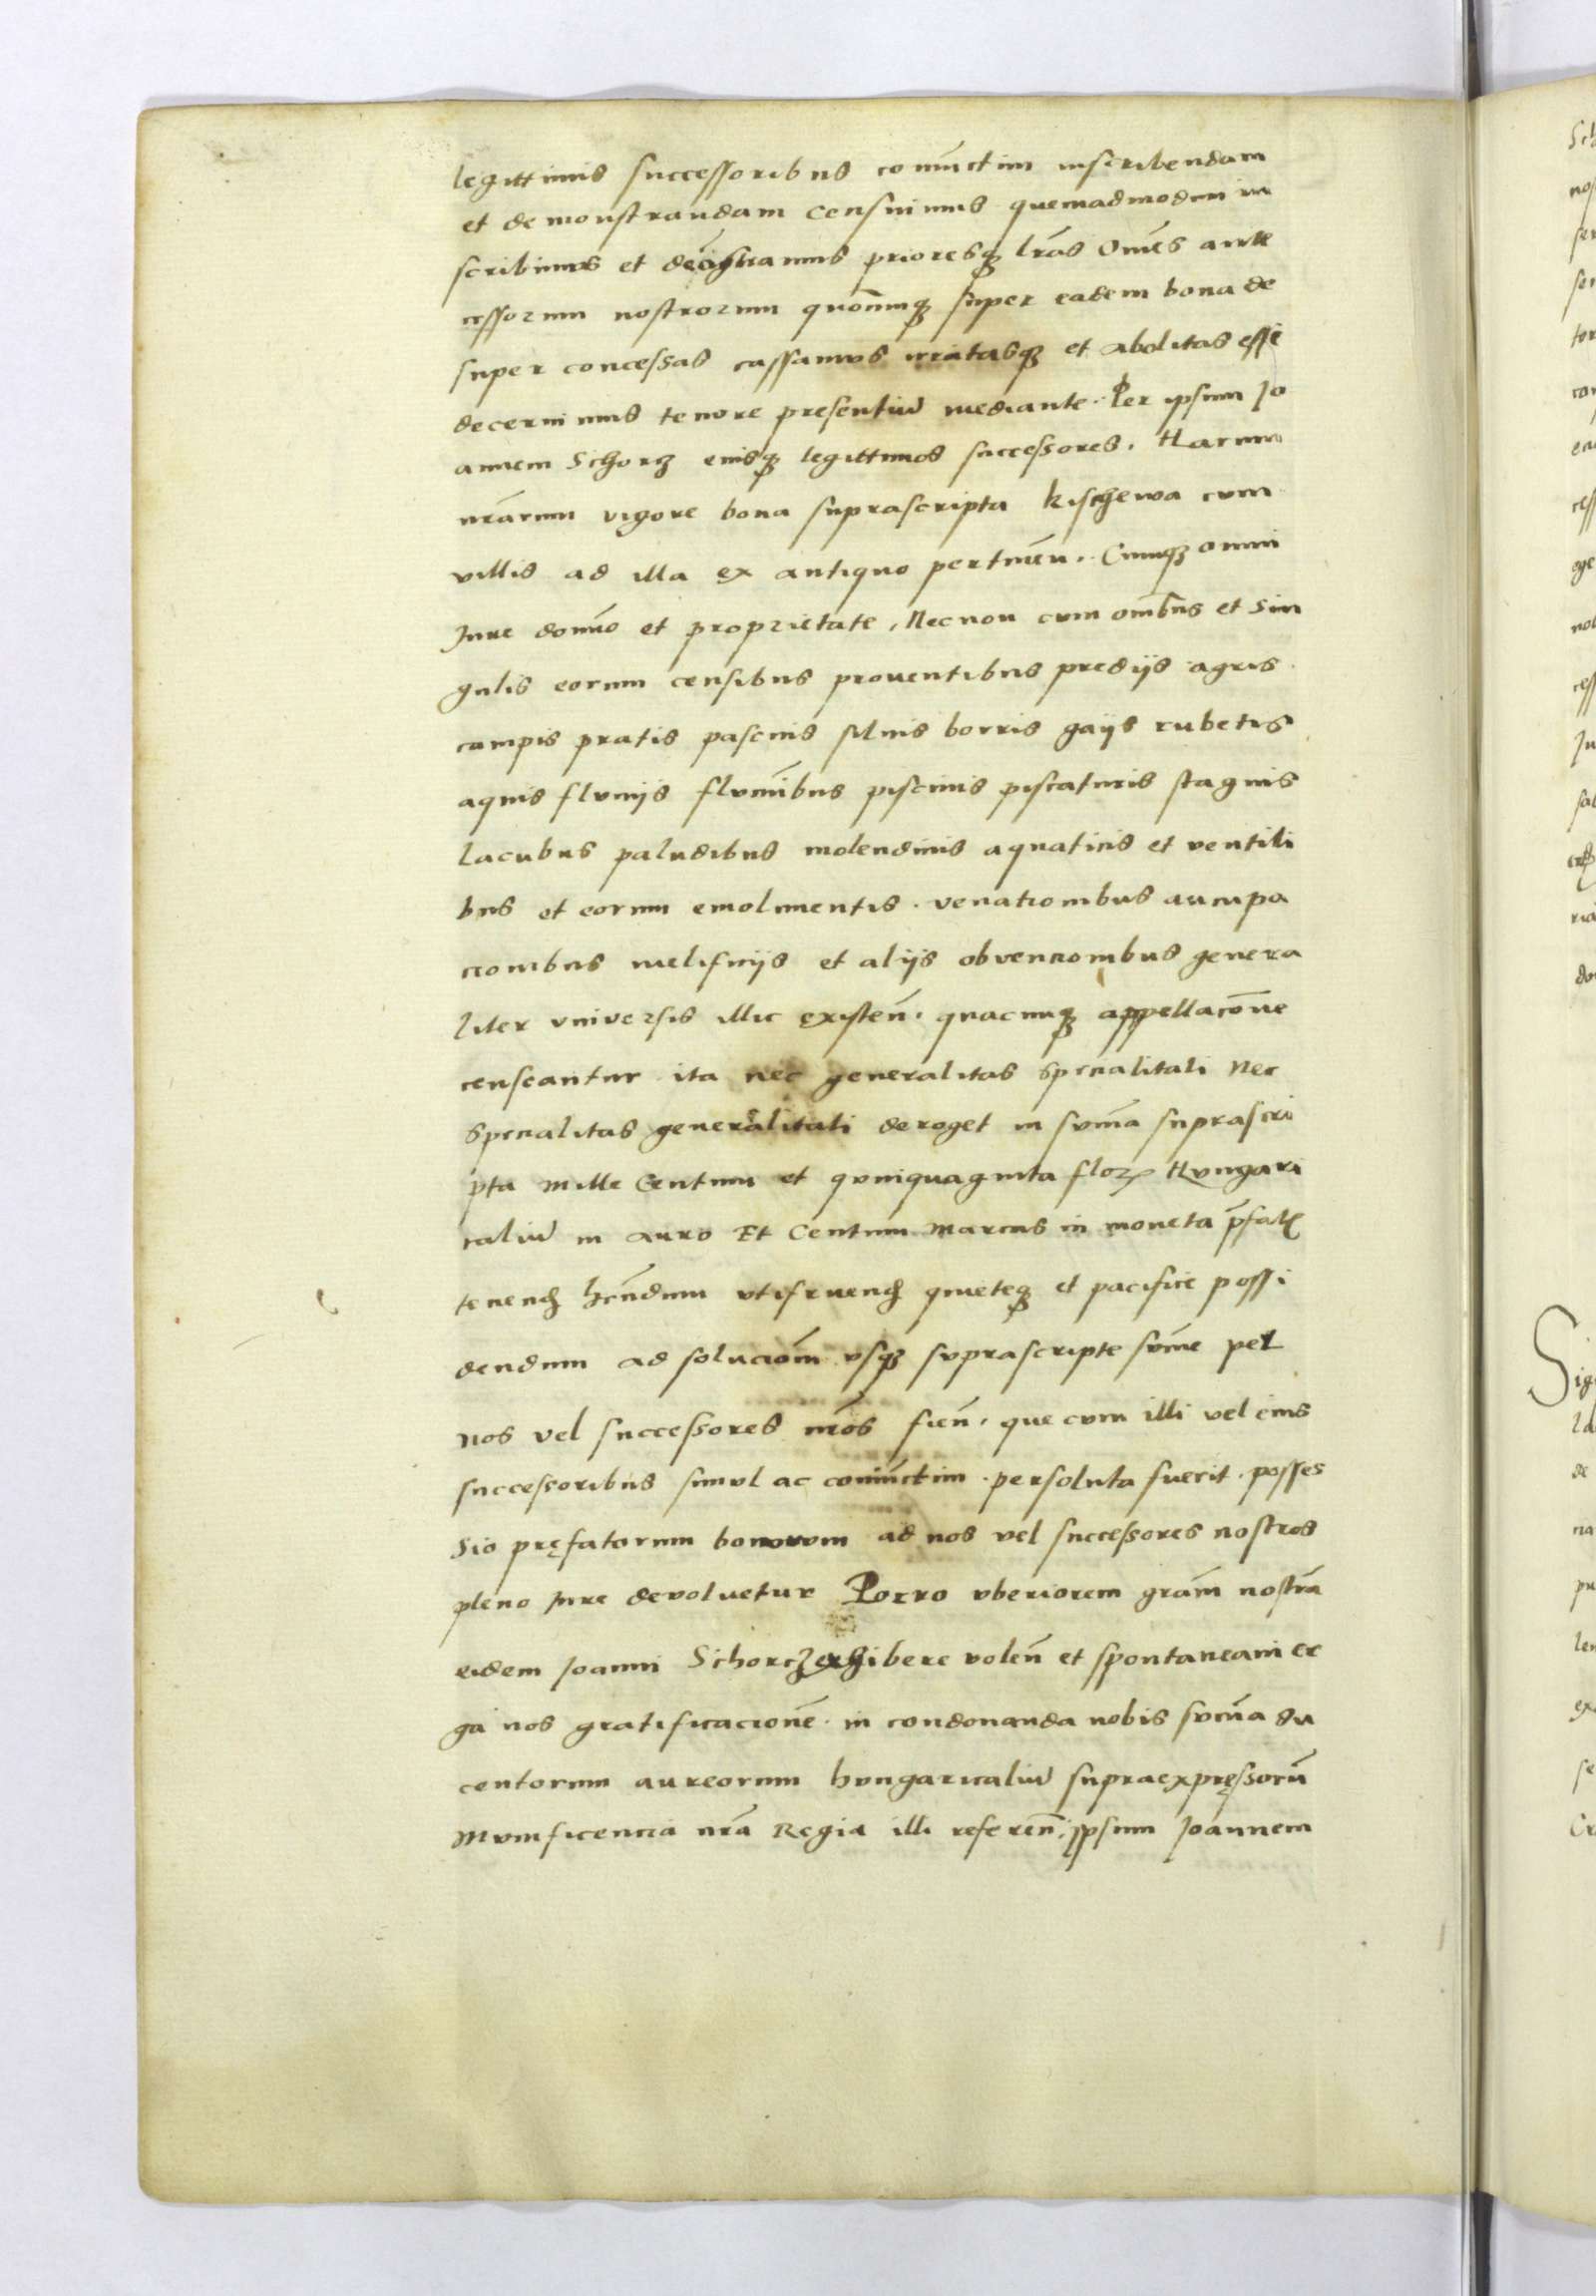 legittimis successoribus coniu̅ctim inscribendam
et demonstrandam censuimus quemadmodum in
scribimus et prioresq; lr̅as Om̅es ante
cessorum nostrorum quoru̅mq; super eadem bona de
super concessas cassamus irritasq; et abolitas esse
decernimus tenore presentiu̅ mediante. Per ipsum Jo
annem Schorcz eiusq; legittimos successores. Harum
nr̅arum vigore bona suprascripta Kischewa cum
villis ad illa ex antiquo pertine̅n. Cumq; omni
Jure domi̅o et proprietate, Necnon cum omi̅bus et Sin
gulis eorum censibus prouentibus predijs agris
campis pratis pascuis siluis borris gaijs rubetis
aquis fluuijs flumi̅bus piscinis piscaturis stagnis
Lacubus paludibus molendinis aquaticis et ventili
bus et eorum emolumentis. venationibus aucupa
cionibus melificijs et alijs obvencionibus genera
liter vniversis illic existen̅. quacunq; appellaco̅ne
censeantur. ita nec generalitas specialitati Nec
Specialitas generalitati deroget in sum̅a suprascri
pta Mille Centum et quinquaginta flor. Hungari
caliu̅ in auro Et Centum Marcas in moneta
tenend. utifruend. quieteq; et pacifice possi
dendum ad solucio̅m vsq; suprascripte sum̅e per
Nos vel successores nr̅os fien̅. que cum illi vel eius
successoribus simul ac coniu̅ctim. persoluta fuerit. posses
Sio pręfatorum bonorum ad nos vel successores nostros
pleno Jure devoluetur Porro vberiorem gra̅m nostra̅
eidem Joanni Schorcz exhibere volen̅ et spontaneam er
ga nos gratificacione̅. in condonanda nobis sum̅a du
centorum aureorum hungaricaliu̅ supraexpręssoru̅
Munificencia nr̅a Regia illi referen̅. Jpsum Joannem